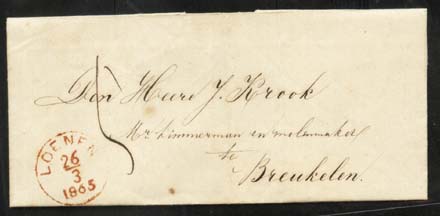 Den Heere J. Krook
Mr. timmerman en molenmaker
te
Breukelen.
LOENEN
26
3
1865